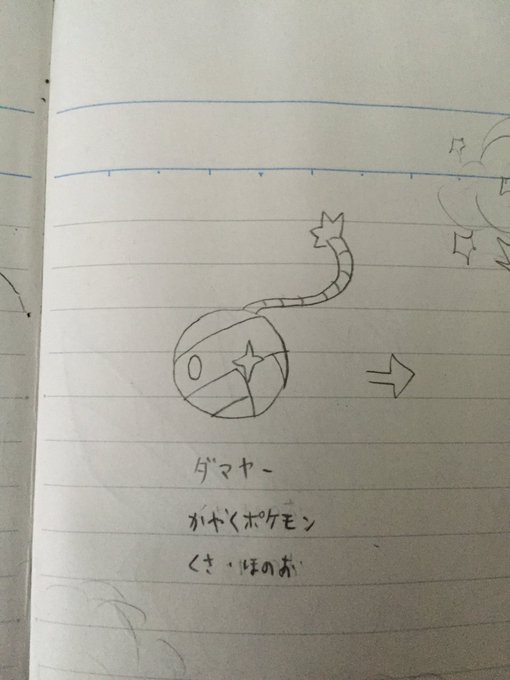 ダマヤー
かやくポケモン
くさ・ほのお